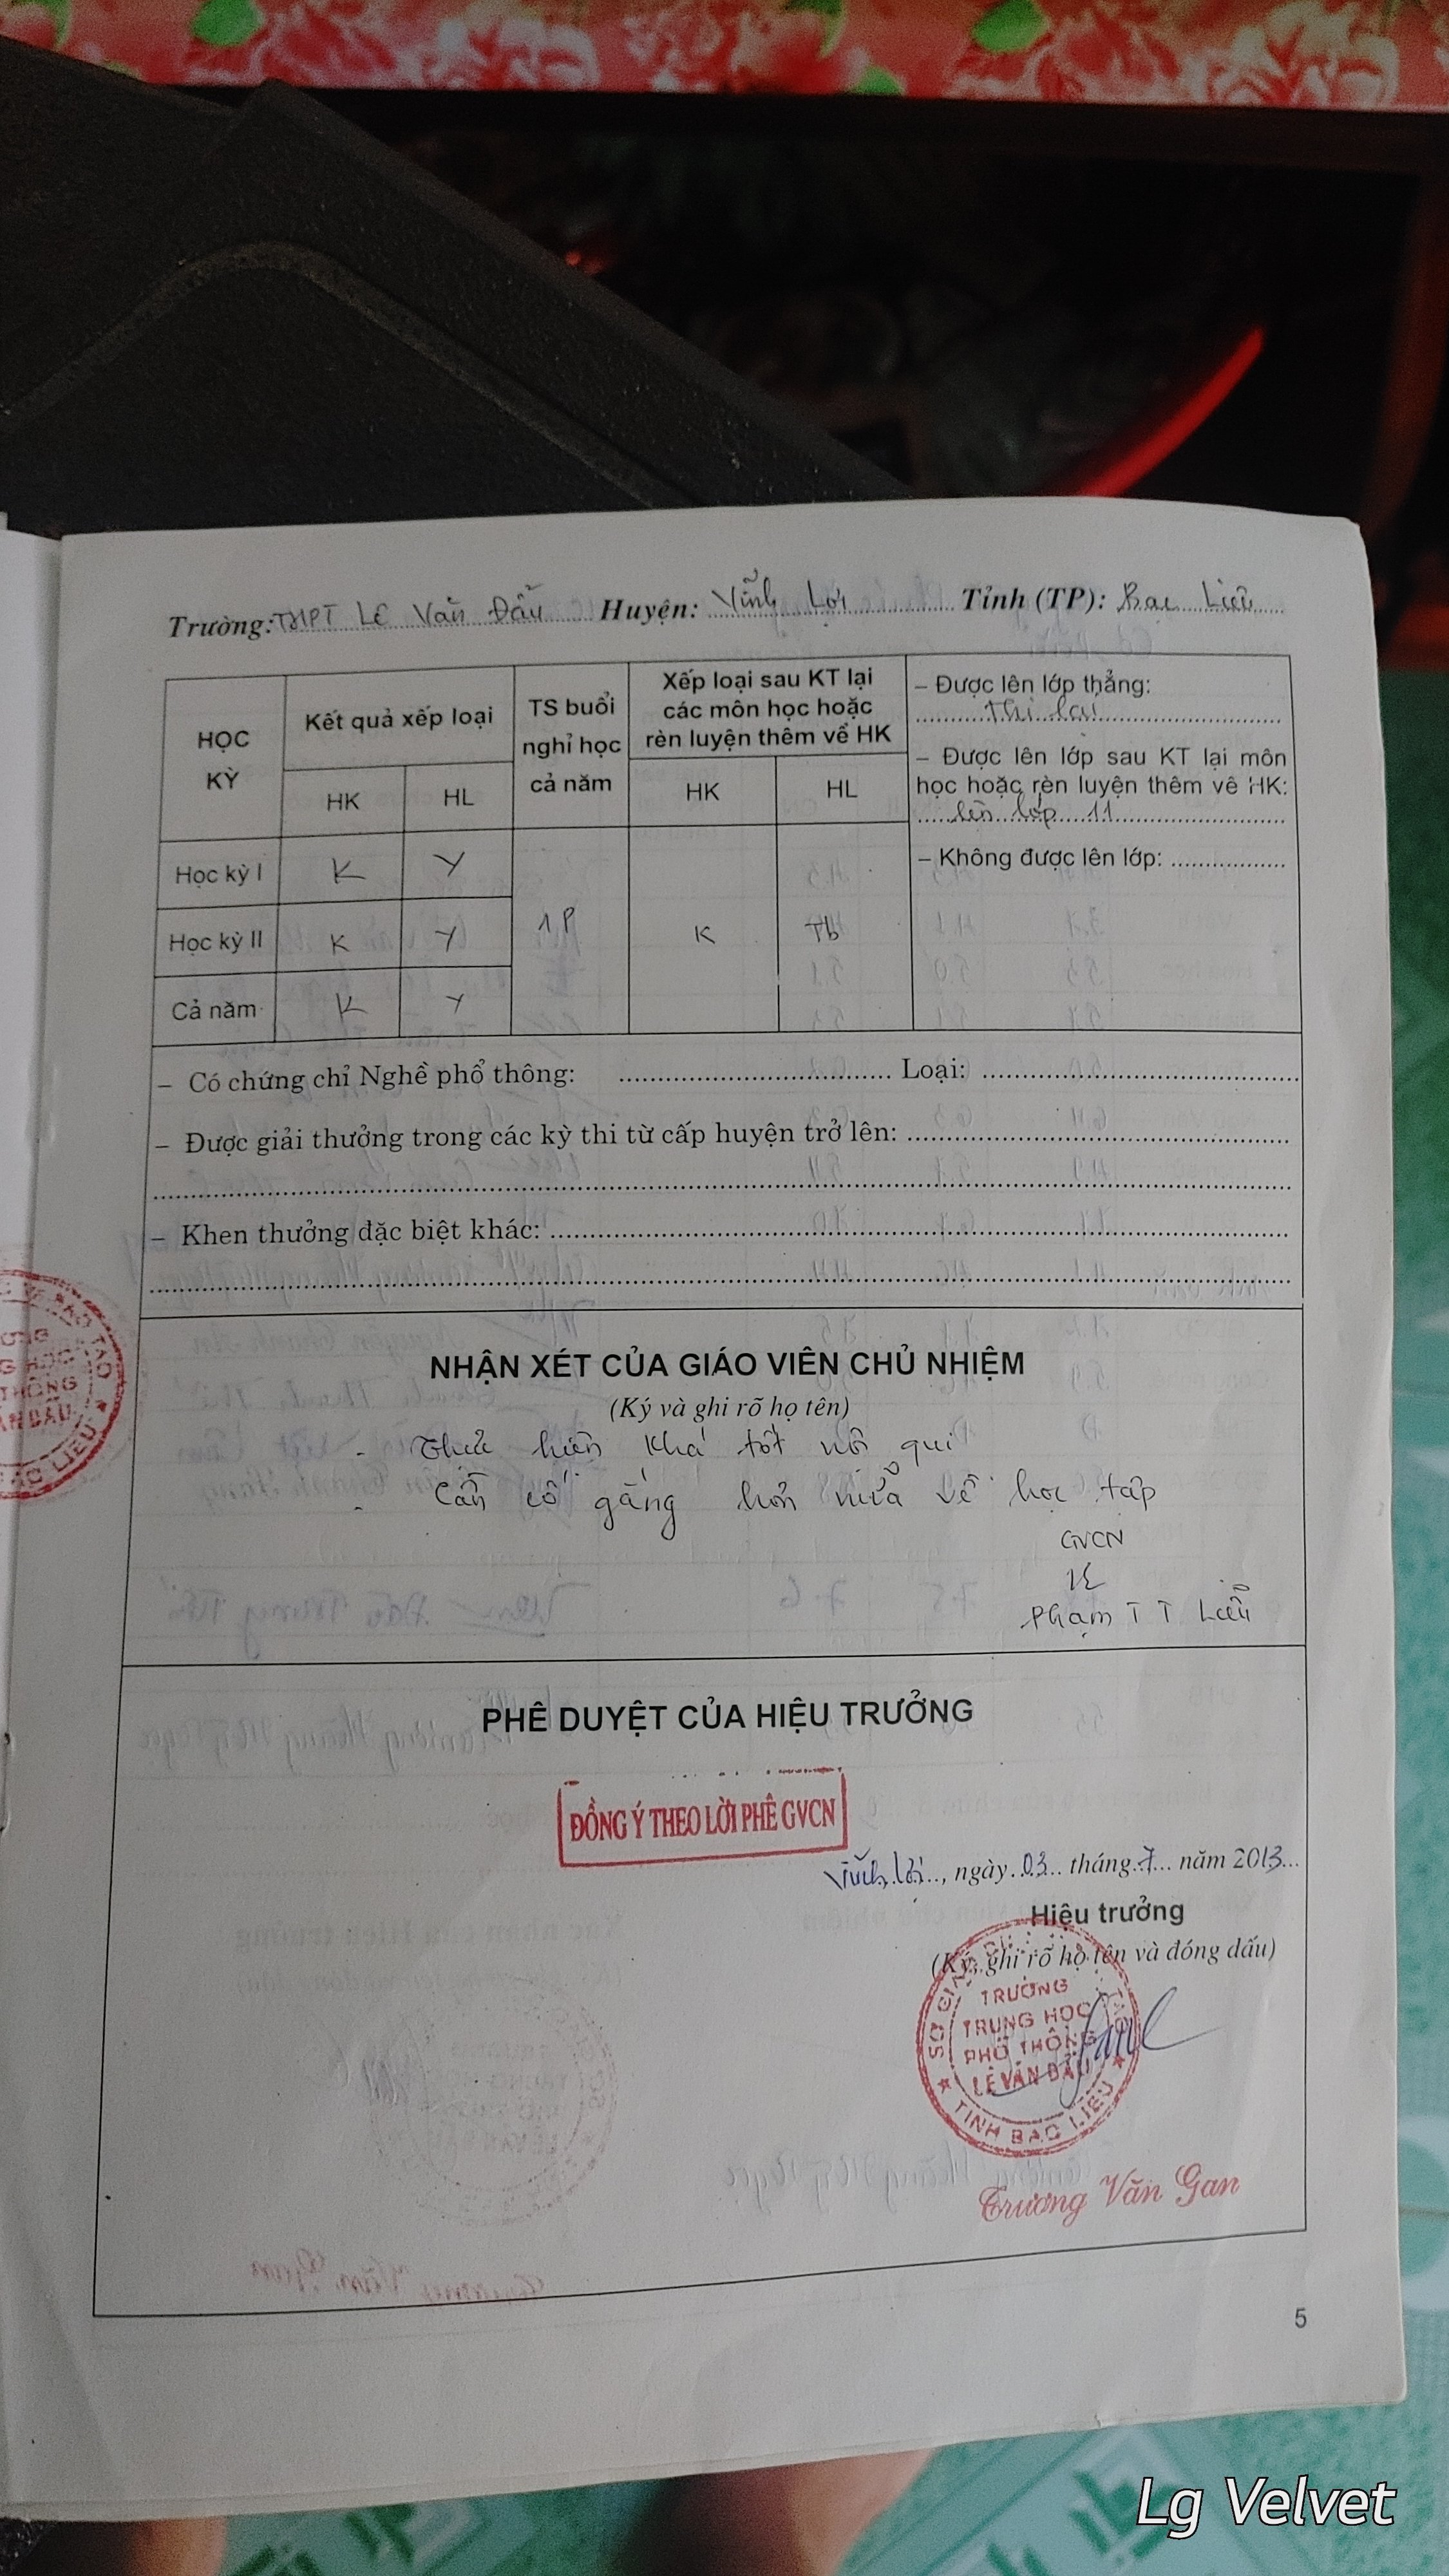 Trường: THPT Lê Văn Đẩu Huyện: Vĩnh Lợi Tỉnh (TP): Bạc Liêu
HỌC KỲ
Kết quả xếp loại
HK HL
TS buổi nghỉ học cả năm
Xếp loại sau KT lại các môn học hoặc rèn luyện thêm về HK
HK HL
– Được lên lớp thẳng:
thi lại
– Được lên lớp sau KT lại môn
học hoặc rèn luyện thêm về HK:
lên lớp 11
– Không được lên lớp:
Học kỳ I K Y
Học kỳ II K Y 1P K Tb
Cả năm K Y
– Có chứng chỉ Nghề phổ thông: Loại:
– Được giải thưởng trong các kỳ thi từ cấp huyện trở lên:
– Khen thưởng đặc biệt khác:
NHẬN XÉT CỦA GIÁO VIÊN CHỦ NHIỆM
(Ký và ghi rõ họ tên)
- Thực hiện khá tốt nội qui
- Cần cố gắng hơn nữa về học tập
GVCN
Phạm T T Liễu
PHÊ DUYỆT CỦA HIỆU TRƯỞNG
ĐỒNG Ý THEO LỜI PHÊ GVCN
Vĩnh Lợi, ngày 03 tháng 7 năm 2013
Hiệu trưởng
(Ký, ghi rõ họ tên và đóng dấu)
TRƯỜNG
TRUNG HỌC
PHỔ THÔNG
LÊ VĂN ĐẨU
TỈNH BẠC LIÊU
Trương Văn Gan
5
Lg Velvet